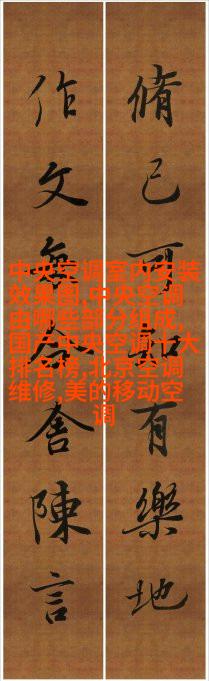 脩己可知有樂地
作文舍陳言
中央空调室内安装
效果图,中央空调
由哪些部分组成,
国产中央空调十大
排名榜,北京空调
维修,美的移动空
调